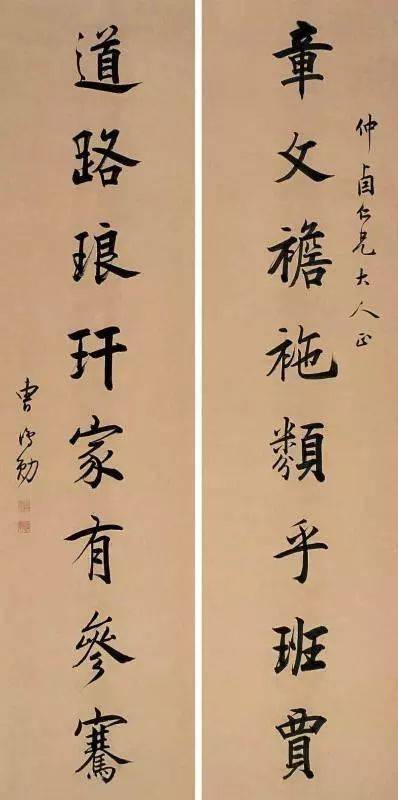 仲卣仁兄大人正
章文襜袘類乎班賈
道路琅玕家有參騫
曹鴻勛